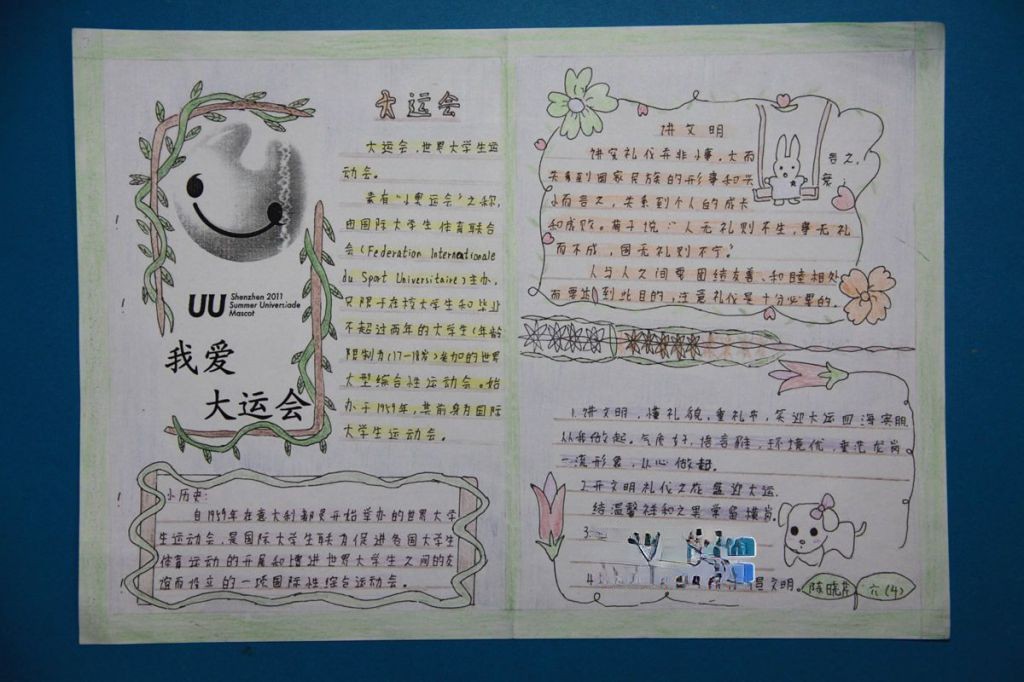 UU Shenzhen 2011
Summer Universiade
Mascot
我爱
大运会
大运会
大运会,世界大学生运
动会。
素有“小奥运会”之称,
由国际大学生体育联合
会(Federation Internationale
du Sport Universitaire)主办,
只限于在校大学生和毕业
不超过两年的大学生(年龄
限制为(17-28岁)参加的世界
大型综合性运动会。始
办于1959年,其前身为国际
大学生运动会。
小历史:
自1959年在意大利都灵开始举办的世界大学
生运动会,是国际大学生联为促进各国大学生
体育运动的开展和增进世界大学生之间的友
谊而设立的一项国际性综合运动会。
讲文明
讲究礼仪弃非小事。大而言之,
关系到国家民族的形事和兴衰;
小而言之,关系到个人的成卡
和成败。荀子说:“人无礼则不生,事无礼
而不成,国无礼则不宁。”
人与人之间要团结友善、和睦相处
而要达到此目的,注意礼仪是十分必要的.
1.讲文明,懂礼貌,重礼节,笑迎大运四海宾朋
从我做起。气质好,语言雅,环境优,龙岗
一流形象,从心做起。
2.开文明礼仪之花盛迎大运.
结温馨祥和之果常留横岗.
3.
4. 文明。
陈晓 六(4)